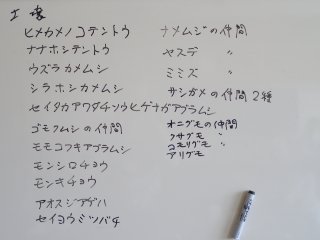 土壌
ヒメカメノコテントウ
ナナホシテントウ
ウズラカメムシ
シラホシカメムシ
セイタカアワダチソウヒゲナガアブラムシ
ゴモクムシの仲間
モモコフキアブラムシ
モンシロチョウ
モンキチョウ
アオスジアゲハ
セイヨウミツバチ
ナメムジの仲間
ヤスデ 〃
ミミズ 〃
サシガメの仲間2種
オニグモの仲間
クサグモ 〃
コモリグモ 〃
アリグモ